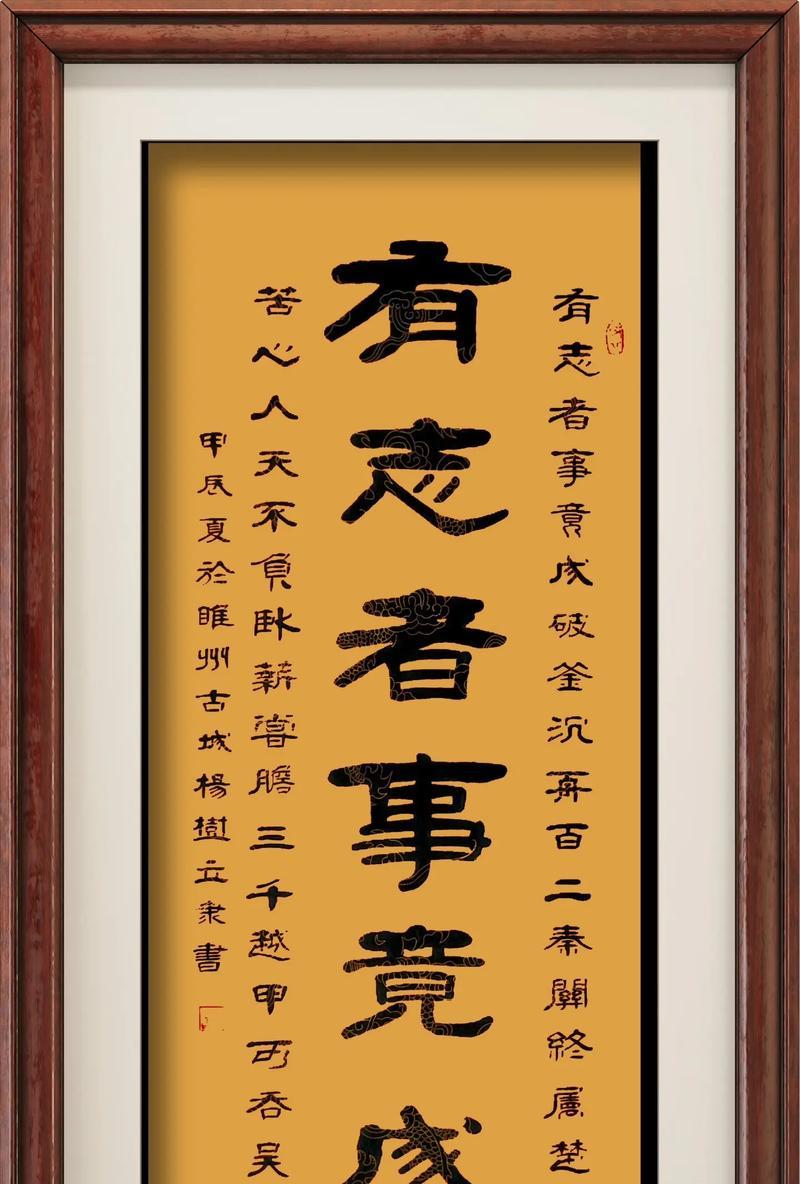 有志者事竟成破釜沉舟百二秦關終屬楚
有志者事竟成
苦心人天不負卧薪嘗膽三千越甲可吞吳
甲辰夏於睢州古城楊樹立隸書